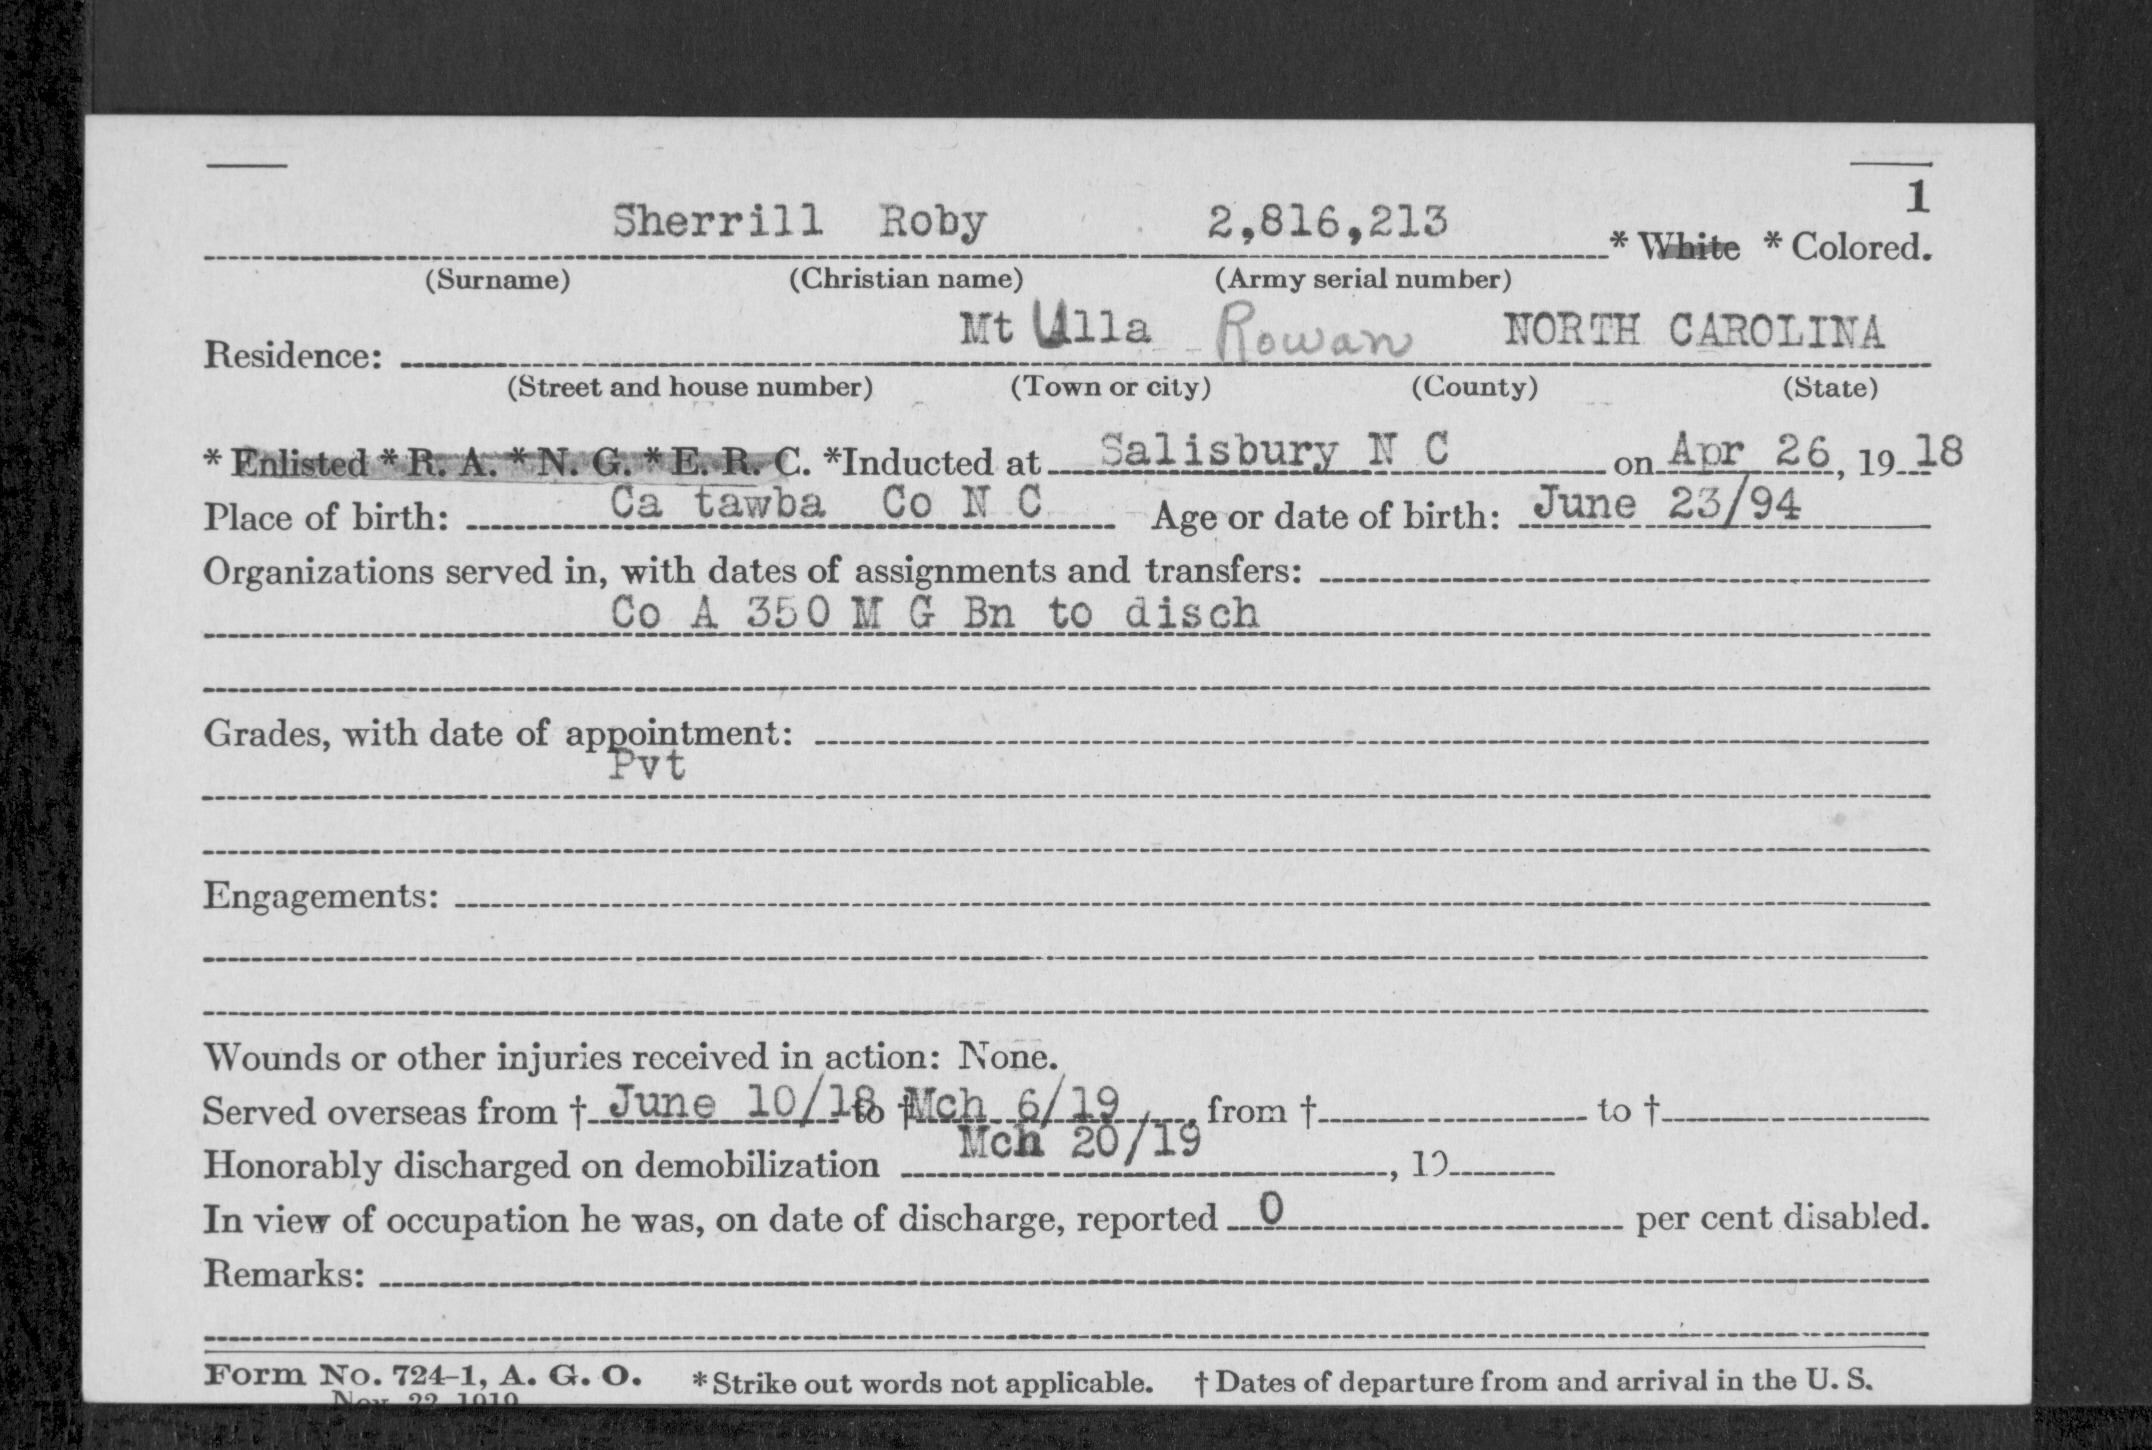 1
Sherrill Roby 2,816,213 * White * Colored.
(Surname) (Christian name) (Army serial number)
Residence: Mt Ulla Rowan NORTH CAROLINA
(Street and house number) (Town or city) (County) (State)
* Enlisted * R. A. * N. G. * E. R. C. *Inducted at Salisbury N C on Apr 26, 19 18
Place of birth: Ca tawba Co N C Age or date of birth: June 23/94
Organizations served in, with dates of assignments and transfers:
Co A 350 M G Bn to disch
Grades, with date of appointment:
Pvt
Engagements:
Wounds or other injuries received in action: None.
Served overseas from † June 10/18 to † Mch 6/19, from † to †
Honorably discharged on demobilization Mch 20/19, 19
In view of occupation he was, on date of discharge, reported 0 per cent disabled.
Remarks:
Form No. 724-1, A. G. O. * Strike out words not applicable. † Dates of departure from and arrival in the U. S.
Nov. 22, 1919